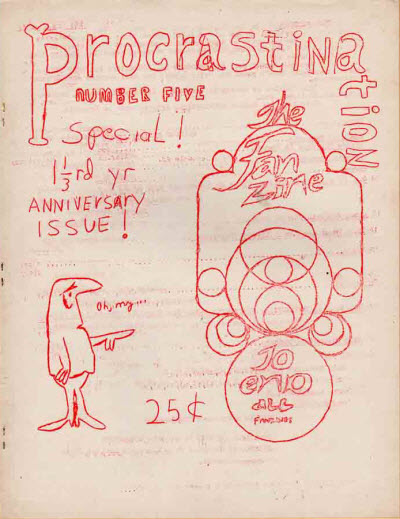 Procrastination
NUMBER FIVE
Special!
1 1/3rd yr
ANNIVERSARY
ISSUE!
The
Fan
Zine
TO
END
ALL
FANZINES
Oh, my...
25¢